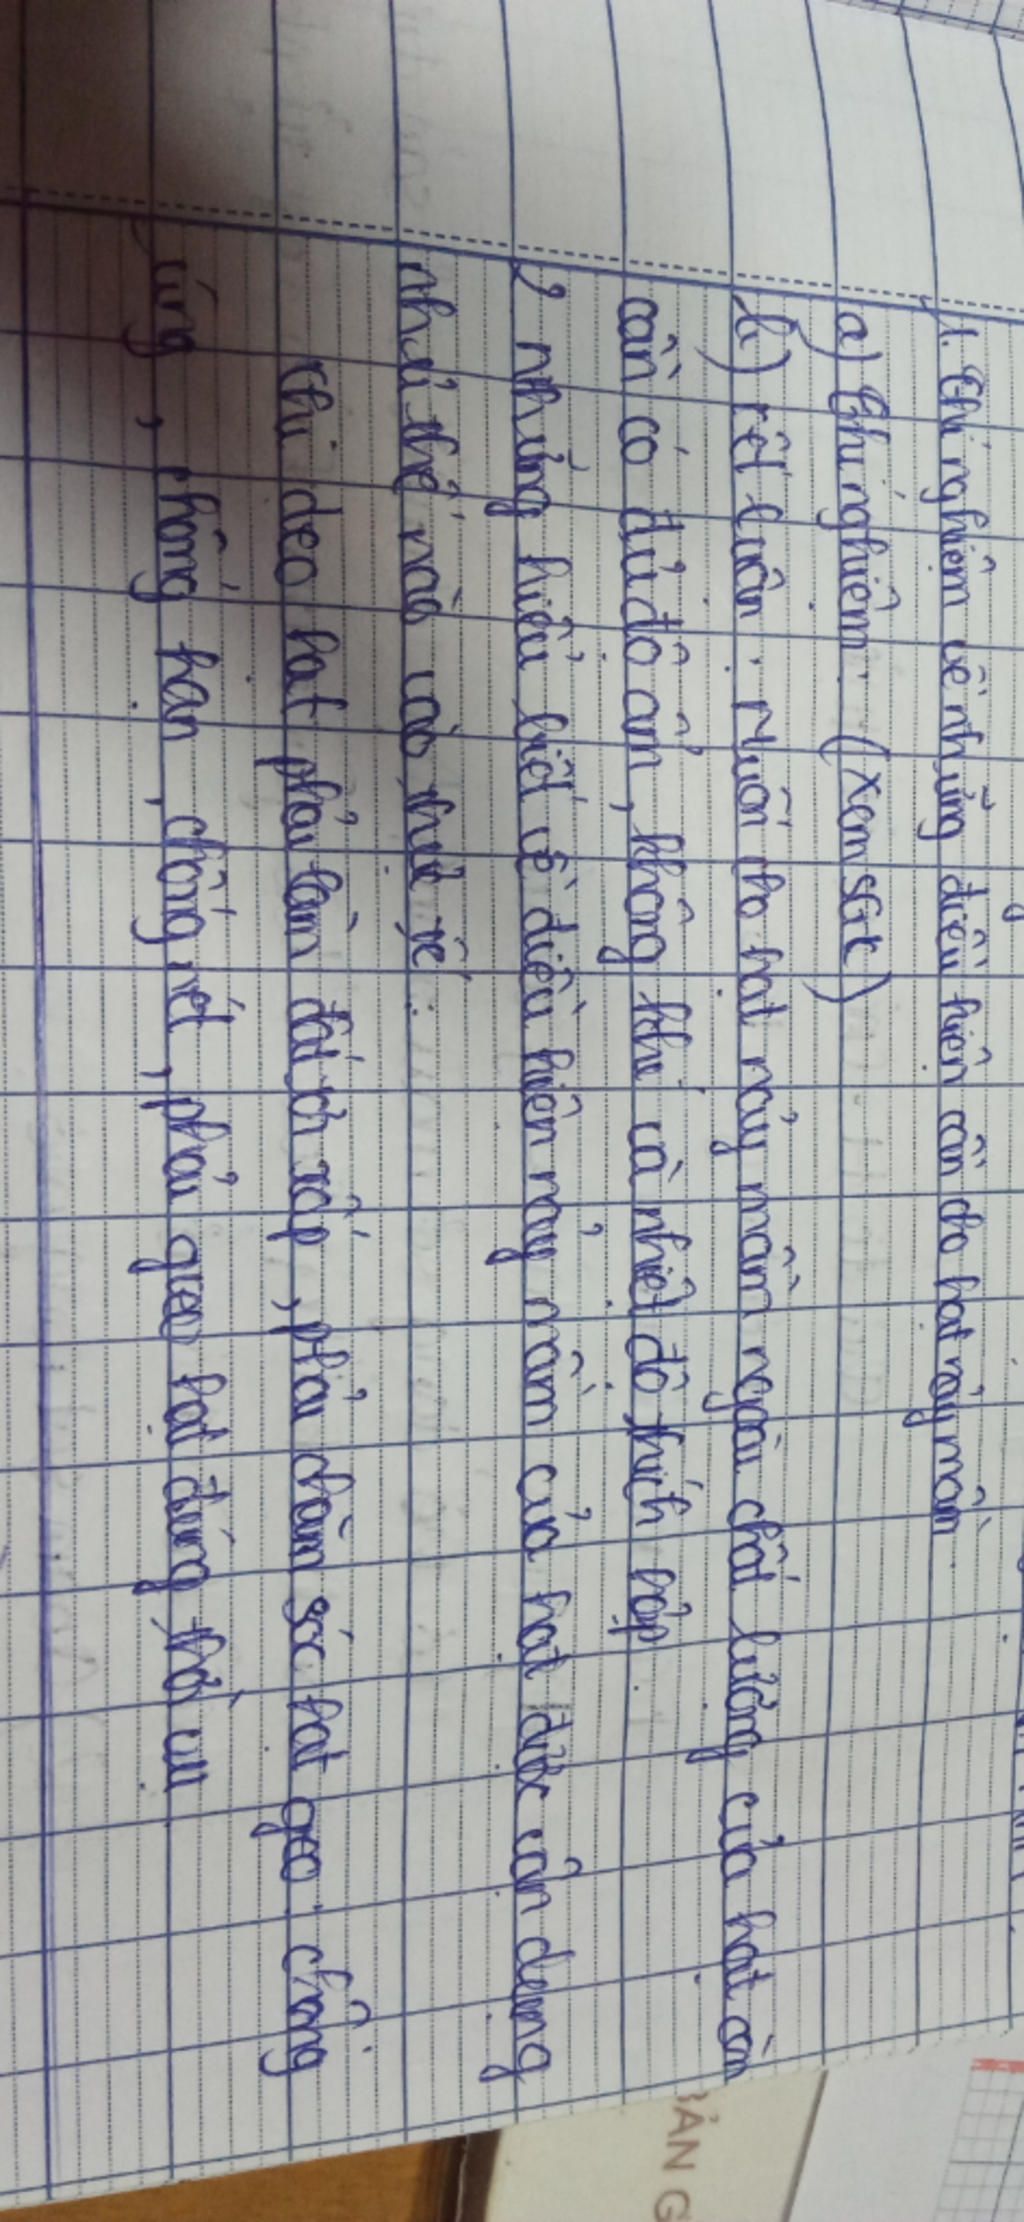 1. Thí nghiệm về những điều kiện cần cho hạt nảy mầm.
a) Thí nghiệm: (xem SGK)
b) Kết luận: Muốn cho hạt nảy mầm ngoài chất lượng của hạt còn
cần có đủ độ ẩm, không khí và nhiệt độ thích hợp.
2 những hiểu biết về điều kiện nảy mầm của hạt được vận dụng
như thế nào vào thực tế:
khi deo hạt phải làm đất tơi xốp, phải chăm sóc hạt geo: chống
úng, chống hạn, chống rét, phải gieo hạt đúng thời vụ
BẢN G